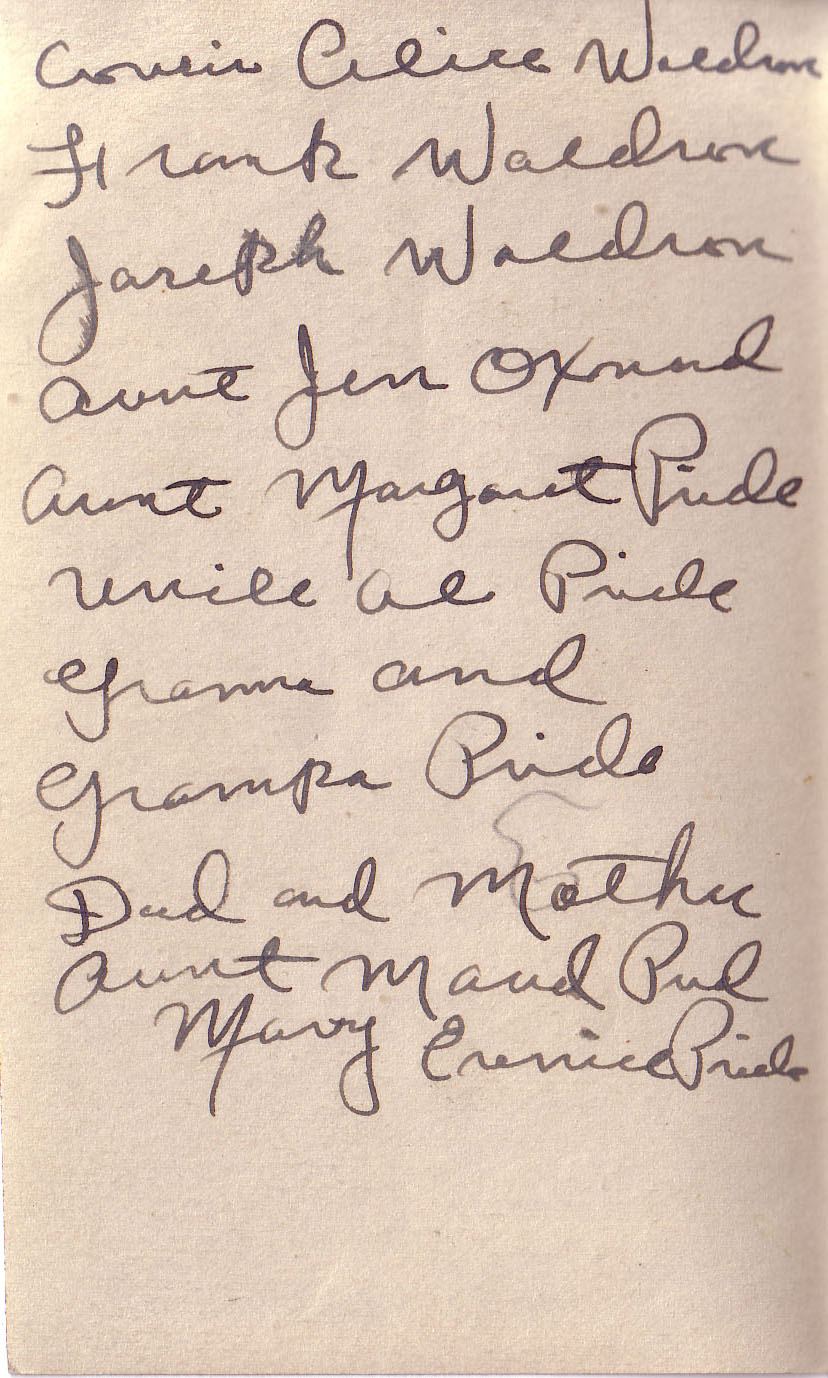 Cousin Alice Waldron
Frank Waldron
Joseph Waldron
Aunt Jen Oxnard
Aunt Margaret Pride
Uncle Al Pride
Gramma and
Grampa Pride
Dad and Mother
Aunt Maud Prid
Mary Eunice Pride